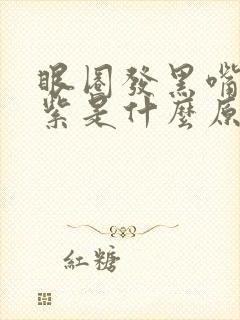 眼圈發黑嘴
紫是什麼原
紅糖